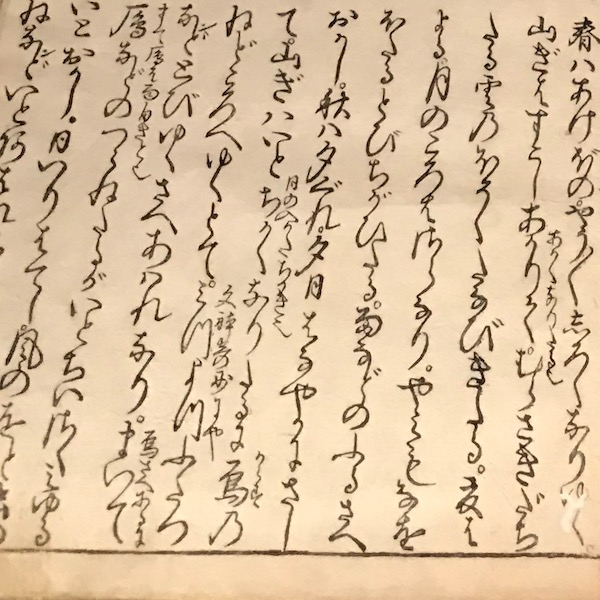 春ハあけぼの。やう〳〵しろくなりゆく
山ぎはすこしあかりて。むらさきだち
たる雲のほそくたなびきたる。夏は
よる。月のころはさらなり。やみもなを
ほたるとびちがひたる。雨などのふるさへ
おかし。秋ハ夕ぐれ。夕日はなやかにさし
て山ぎハいとちかくなりたるに烏の
からす
ねどころへゆくとて。みつよつふたつ
文躰奇妙にや
などとびゆくさへあハれなり。まいて
鴈などのつらねたるがいとちいさくみゆる
いとおかし。日いりはてて。風のをと
ねなどいとあはれ